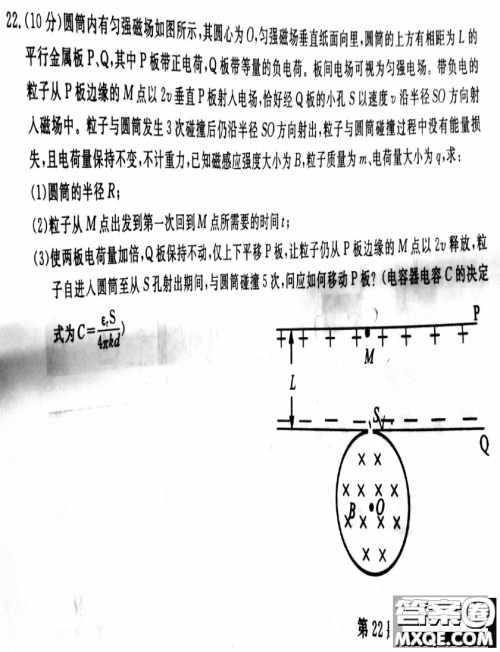 22.(10分)圆筒内有匀强磁场如图所示,其圆心为O,匀强磁场垂直纸面向里,圆筒的上方有相距为L的
平行金属板P、Q,其中P板带正电荷,Q板带等量的负电荷。板间电场可视为匀强电场。带负电的
粒子从P板边缘的M点以2v垂直P板射入电场,恰好经Q板的小孔S以速度v沿半径SO方向射
入磁场中。粒子与圆筒发生3次碰撞后仍沿半径SO方向射出,粒子与圆筒碰撞过程中没有能量损
失,且电荷量保持不变,不计重力,已知磁感应强度大小为B,粒子质量为m、电荷量大小为q,求:
(1)圆筒的半径R;
(2)粒子从M点出发到第一次回到M点所需要的时间t;
(3)使两板电荷量加倍,Q板保持不动,仅上下平移P板,让粒子仍从P板边缘的M点以2v释放,粒
子自进入圆筒至从S孔射出期间,与圆筒碰撞5次,问应如何移动P板?(电容器电容C的决定
式为C=εᵣS/4πkd)
P
+ + + + + + + +
M
L
S
Q
× ×
× × × ×
B O
× × × ×
× ×
第 22
答案圈
MXQE.COM